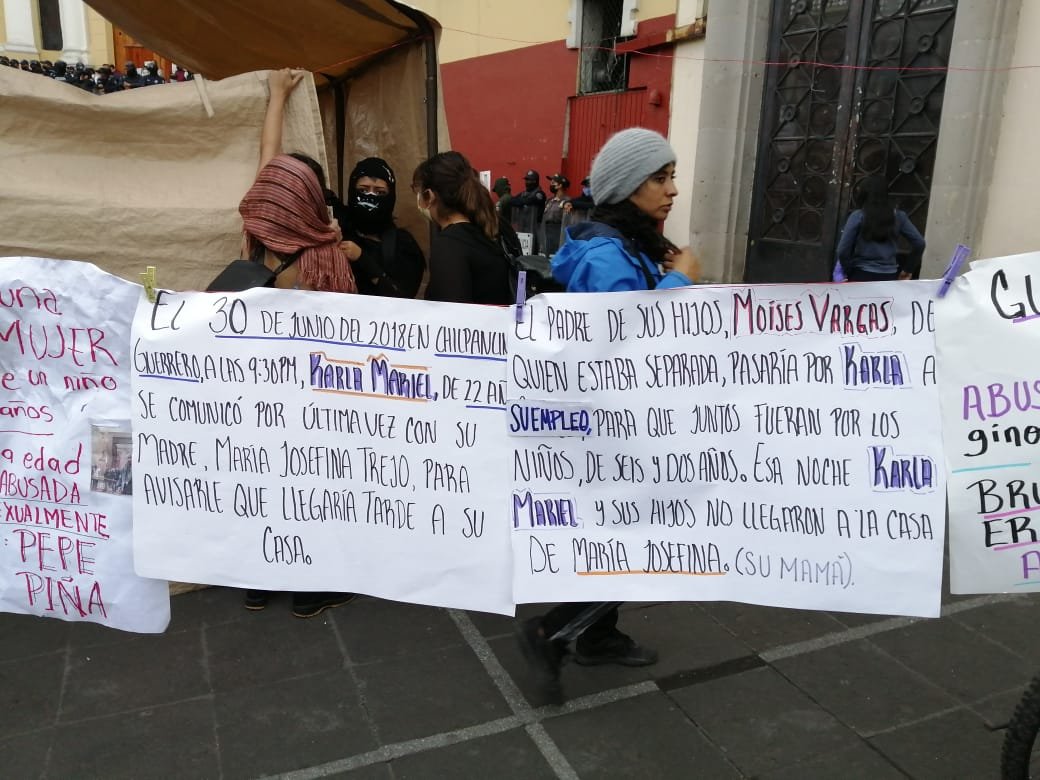 una
MUJER
e un niño
años
a edad
ABUSADA
EXUALMENTE
: PEPE
PIÑA
EL 30 DE JUNIO DEL 2018 EN CHILPANCIN
GUERRERO, A LAS 9:30 PM, KARLA MARIEL, DE 22 AÑ
SE COMUNICÓ POR ÚLTIMA VEZ CON SU
MADRE, MARÍA JOSEFINA TREJO, PARA
AVISARLE QUE LLEGARÍA TARDE A SU
CASA.
EL PADRE DE SUS HIJOS, MOISES VARGAS, DE
QUIEN ESTABA SEPARADA, PASARÍA POR KARLA A
SU EMPLEO, PARA QUE JUNTOS FUERAN POR LOS
NIÑOS, DE SEIS Y DOS AÑOS. ESA NOCHE KARLA
MARIEL Y SUS HIJOS NO LLEGARON A LA CASA
DE MARÍA JOSEFINA. (SU MAMÁ).
GU
ABUS
gino
BRU
ER
A